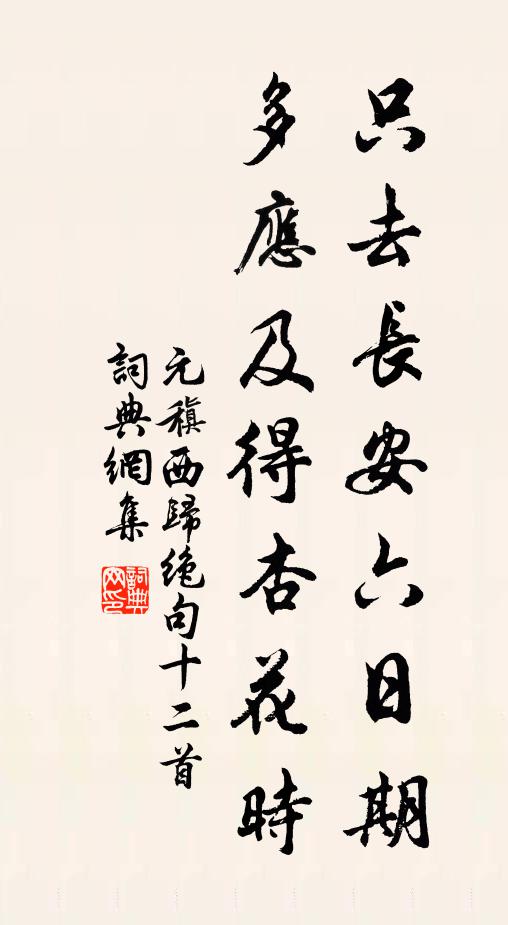 只去長安六日期
多應及得杏花時
元稹西歸绝句十二首
詞典網集
詞典
网印